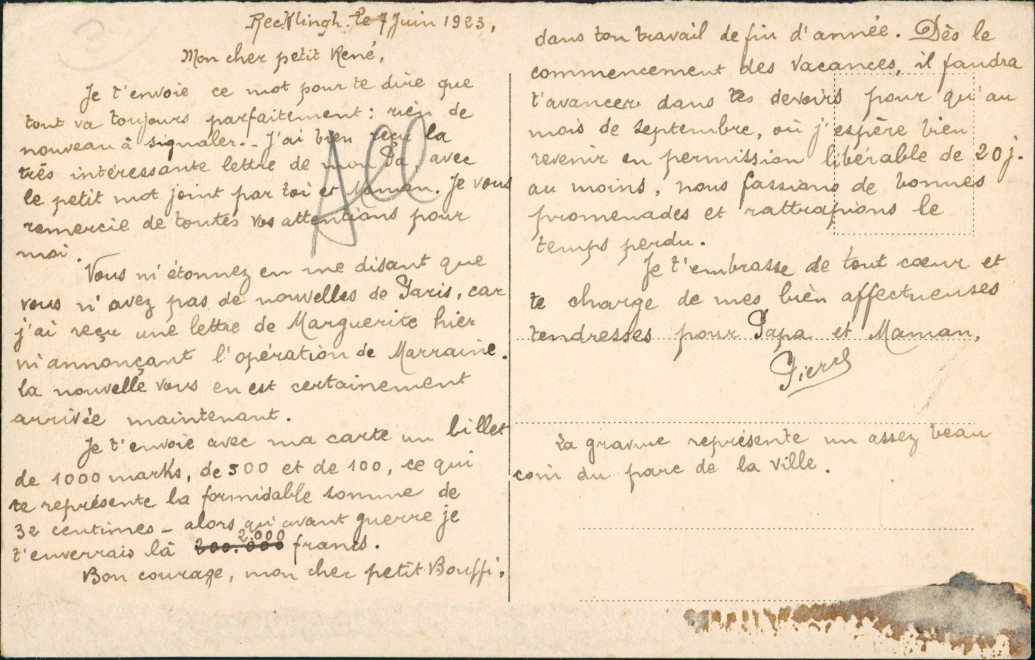 3
Recklingh. le 7 Juin 1923,
Mon cher petit René,
Je t'envoie ce mot pour te dire que
tout va toujours parfaitement : rien de
nouveau à signaler.. J'ai bien reçu la
très intéressante lettre de mon Pa, avec
le petit mot joint par toi et Maman. Je vous
remercie de toutes vos attentions pour
moi.
Vous m'étonnez en me disant que
vous n'avez pas de nouvelles de Paris, car
j'ai reçu une lettre de Marguerite hier
m'annonçant l'opération de Marraine.
la nouvelle vous en est certainement
arrivée maintenant.
Je t'envoie avec ma carte un billet
de 1000 marks, de 500 et de 100, ce qui
te représente la formidable somme de
32 centimes - alors qu'avant guerre je
t'enverrais là 200.000 2.000 francs.
Bon courage, mon cher petit Bouffi,
dans ton travail de fin d'année. Dès le
commencement des vacances, il faudra
t'avancer dans tes devoirs pour qu'au
mois de septembre, où j'espère bien
revenir en permission libérable de 20 j.
au moins, nous fassions de bonnes
promenades et rattrapions le
temps perdu.
Je t'embrasse de tout cœur et
te charge de mes bien affectueuses
tendresses pour Papa et Maman.
Pierre
La gravure représente un assez beau
coin du parc de la ville.
All